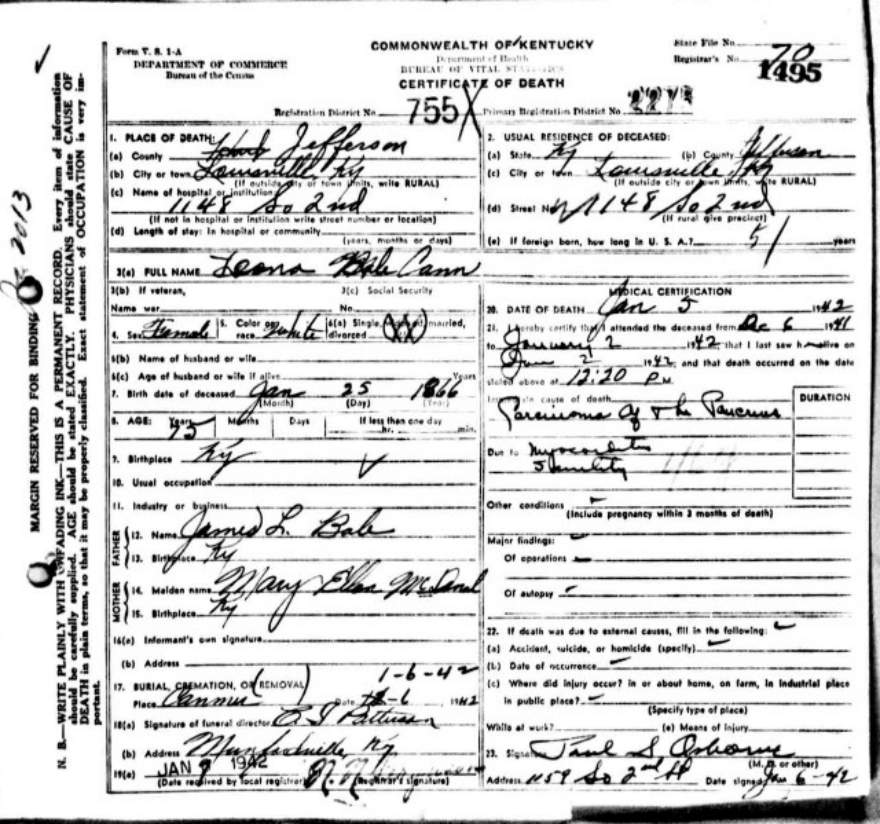 Form V. S. 1-A
DEPARTMENT OF COMMERCE
Bureau of the Census
COMMONWEALTH OF KENTUCKY
Department of Health
BUREAU OF VITAL STATISTICS
CERTIFICATE OF DEATH
State File No.
Registrar's No. 70
1495
Registration District No. 755 X Primary Registration District No.
MARGIN RESERVED FOR BINDING
N. B.—WRITE PLAINLY WITH UNFADING INK—THIS IS A PERMANENT RECORD. Every item of information
should be carefully supplied. AGE should be stated EXACTLY. PHYSICIANS should state CAUSE OF
DEATH in plain terms, so that it may be properly classified. Exact statement of OCCUPATION is very im-
portant.
1. PLACE OF DEATH:
(a) County Jefferson
(b) City or town Louisville, Ky
(If outside city or town limits, write RURAL)
(c) Name of hospital or institution
1148 So 2nd
(If not in hospital or institution write street number or location)
(d) Length of stay: In hospital or community
(years, months or days)
2. USUAL RESIDENCE OF DECEASED:
(a) State Ky (b) County Jefferson
(c) City or town Louisville, Ky
(If outside city or town limits, write RURAL)
(d) Street No. 1148 So 2nd
(If rural give precinct)
(e) If foreign born, how long in U. S. A.? years
3(a) FULL NAME Leona Bale Cann
3(b) If veteran,
Name war
3(c) Social Security
No.
4. Sex Female 5. Color or race white 6(a) Single, married, divorced (XX)
6(b) Name of husband or wife
6(c) Age of husband or wife if alive Years
7. Birth date of deceased Jan 25 1866
(Month) (Day) (Year)
8. AGE: Years 75 Months Days If less than one day
hr. min.
9. Birthplace Ky
10. Usual occupation
11. Industry or business
FATHER
12. Name James L. Bale
13. Birthplace Ky
MOTHER
14. Maiden name Mary Ellen
15. Birthplace Ky
16(a) Informant's own signature
(b) Address
1-6-42
17. BURIAL, CREMATION, OR (REMOVAL)
Place Canmer Date 1-6 1942
18(a) Signature of funeral director
(b) Address Munfordville Ky
19(a) JAN 9 1942
(Date received by local registrar) (Registrar's signature)
MEDICAL CERTIFICATION
20. DATE OF DEATH Jan 5 1942
21. I hereby certify that I attended the deceased from Dec 6 1941
to January 2 1942, that I last saw h alive on
Jan 2 1942, and that death occurred on the date
stated above at 12:20 PM
Immediate cause of death
DURATION
Carcinoma of the Pancreas
Due to Myocarditis
Senility
Other conditions
(Include pregnancy within 3 months of death)
Major findings:
Of operations
Of autopsy
22. If death was due to external causes, fill in the following:
(a) Accident, suicide, or homicide (specify)
(b) Date of occurrence
(c) Where did injury occur? in or about home, on farm, in industrial place
in public place?
(Specify type of place)
While at work? (e) Means of injury
23. Signature Paul S Osborne
(M. D. or other)
Address 1159 So 2nd St Date signed Jan 6-42